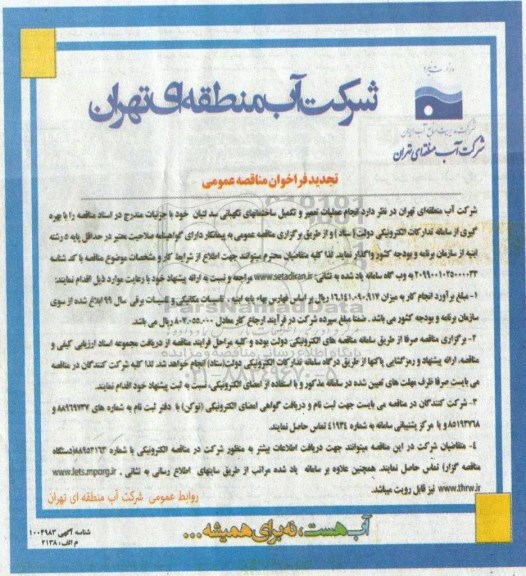 وزارت نیرو
شرکت مدیریت منابع آب ایران
شرکت آب منطقه‌ای تهران
شرکت آب منطقه‌ای تهران
تجدید فراخوان مناقصه عمومی
شرکت آب منطقه‌ای تهران در نظر دارد انجام عملیات تعمیر و تکمیل ساختمانهای نگهبانی سد لتیان خود با جزئیات مندرج در اسناد مناقصه را با بهره
گیری از سامانه تدارکات الکترونیکی دولت (ستاد) و از طریق برگزاری مناقصه عمومی به پیمانکار دارای گواهینامه صلاحیت معتبر در حداقل پایه ۵ رشته
ابنیه از سازمان برنامه و بودجه کشور واگذار نماید. لذا کلیه متقاضیان محترم میتوانند جهت اطلاع از شرایط کار و مشخصات موضوع مناقصه با کد شناسه
۲۰۹۹۰۰۱۰۲۵۰۰۰۰۳۳ به وب گاه سامانه یاد شده به نشانی: www.setadiran.ir مراجعه و نسبت به ارائه پیشنهاد خود با رعایت موارد ذیل اقدام نمایند:
۱- مبلغ برآورد انجام کار به میزان ۱۶.۱۴۱.۰۹۰.۹۱۷ ریال بر اساس فهارس بهاء پایه ابنیه ، تاسیسات مکانیکی و تاسیسات برقی سال ۹۹ ابلاغ شده از سوی
سازمان برنامه و بودجه کشور می باشد . ضمنا مبلغ سپرده شرکت در فرآیند ارجاع کار معادل ۸۰۷.۰۵۵.۰۰۰ ریال می باشد.
۲- برگزاری مناقصه صرفا از طریق سامانه مناقصه های الکترونیکی دولت بوده و کلیه مراحل فرایند مناقصه از دریافت مجموعه اسناد ارزیابی کیفی و
مناقصه، ارائه پیشنهاد و رمزگشایی پاکتها از طریق درگاه سامانه تدارکات الکترونیکی دولت(ستاد) انجام خواهد شد. لذا کلیه شرکت کنندگان در مناقصه
می بایست صرفا ظرف مهلت های تعیین شده در سامانه مذکور و با استفاده از امضای الکترونیکی، نسبت به ثبت پیشنهاد خود اقدام نمایند.
۳- شرکت کنندگان در مناقصه می بایست جهت ثبت نام و دریافت گواهی امضای الکترونیکی (توکن) با دفتر ثبت نام به شماره های ۸۸۹۶۹۷۳۷ و
۸۵۱۹۳۷۶۸ و یا مرکز پشتیبانی سامانه به شماره ۴۱۹۳۴ تماس حاصل نمایند.
۴- متقاضیان شرکت در این مناقصه میتوانند جهت دریافت اطلاعات بیشتر به منظور شرکت در مناقصه الکترونیکی با شماره ۸۸۹۵۲۱۶۳(دستگاه
مناقصه گزار) تماس حاصل نمایند. همچنین علاوه بر سامانه یاد شده مراتب از طریق سایتهای اطلاع رسانی به نشانی . www.Iets.mporg.ir
www.thrw.ir نیز قابل رویت میباشد.
روابط عمومی شرکت آب منطقه ای تهران
آب هست، نه برای همیشه...
شناسه آگهی ۱۰۰۴۹۸۳
م الف: ۲۱۳۸
ParsNamadData
پایگاه اطلاع رسانی مناقصه و مزایده